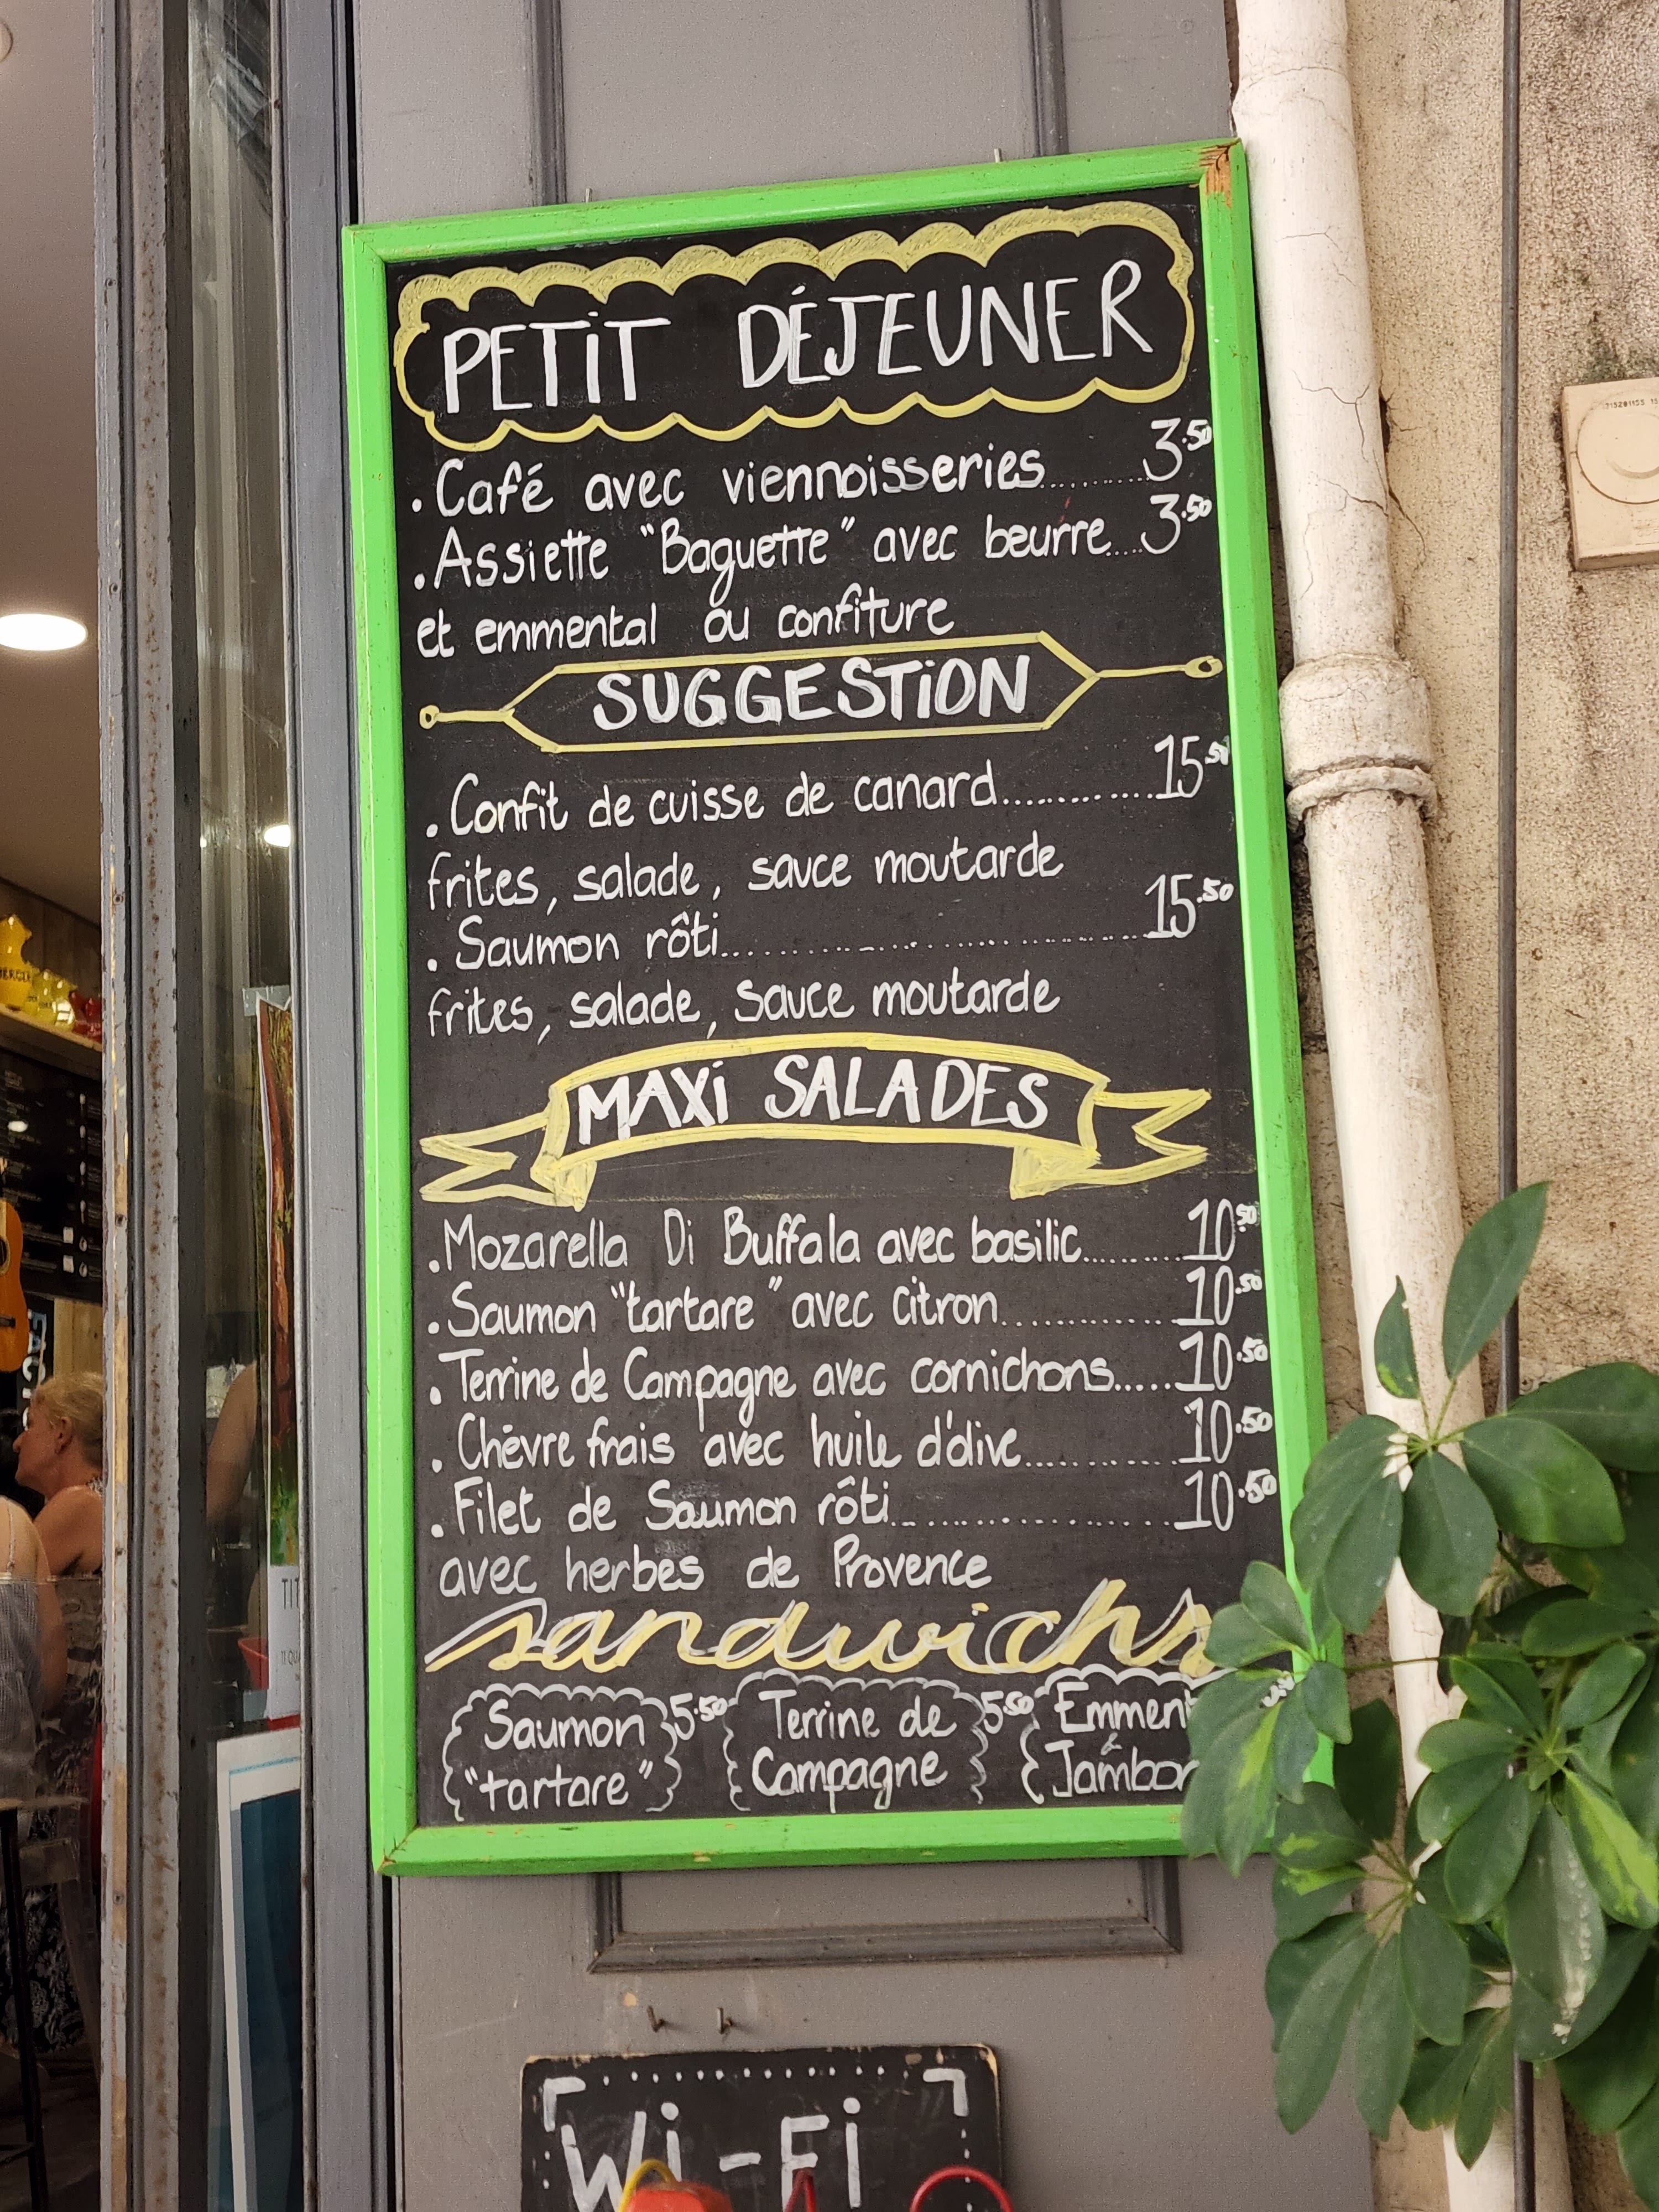 PETIT DÉJEUNER
. Café avec viennoisseries.......... 3.50
. Assiette "Baguette" avec beurre.... 3.50
et emmental ou confiture
SUGGESTION
. Confit de cuisse de canard............ 15.50
frites, salade, sauce moutarde
. Saumon rôti........................ 15.50
frites, salade, sauce moutarde
MAXI SALADES
. Mozarella Di Buffala avec basilic......... 10.50
. Saumon "tartare" avec citron............. 10.50
. Terrine de Campagne avec cornichons..... 10.50
. Chèvre frais avec huile d'olive........... 10.50
. Filet de Saumon rôti.................... 10.50
avec herbes de Provence
sandwichs
Saumon 5.50 Terrine de 5.50
"tartare" Campagne &
Wi-Fi